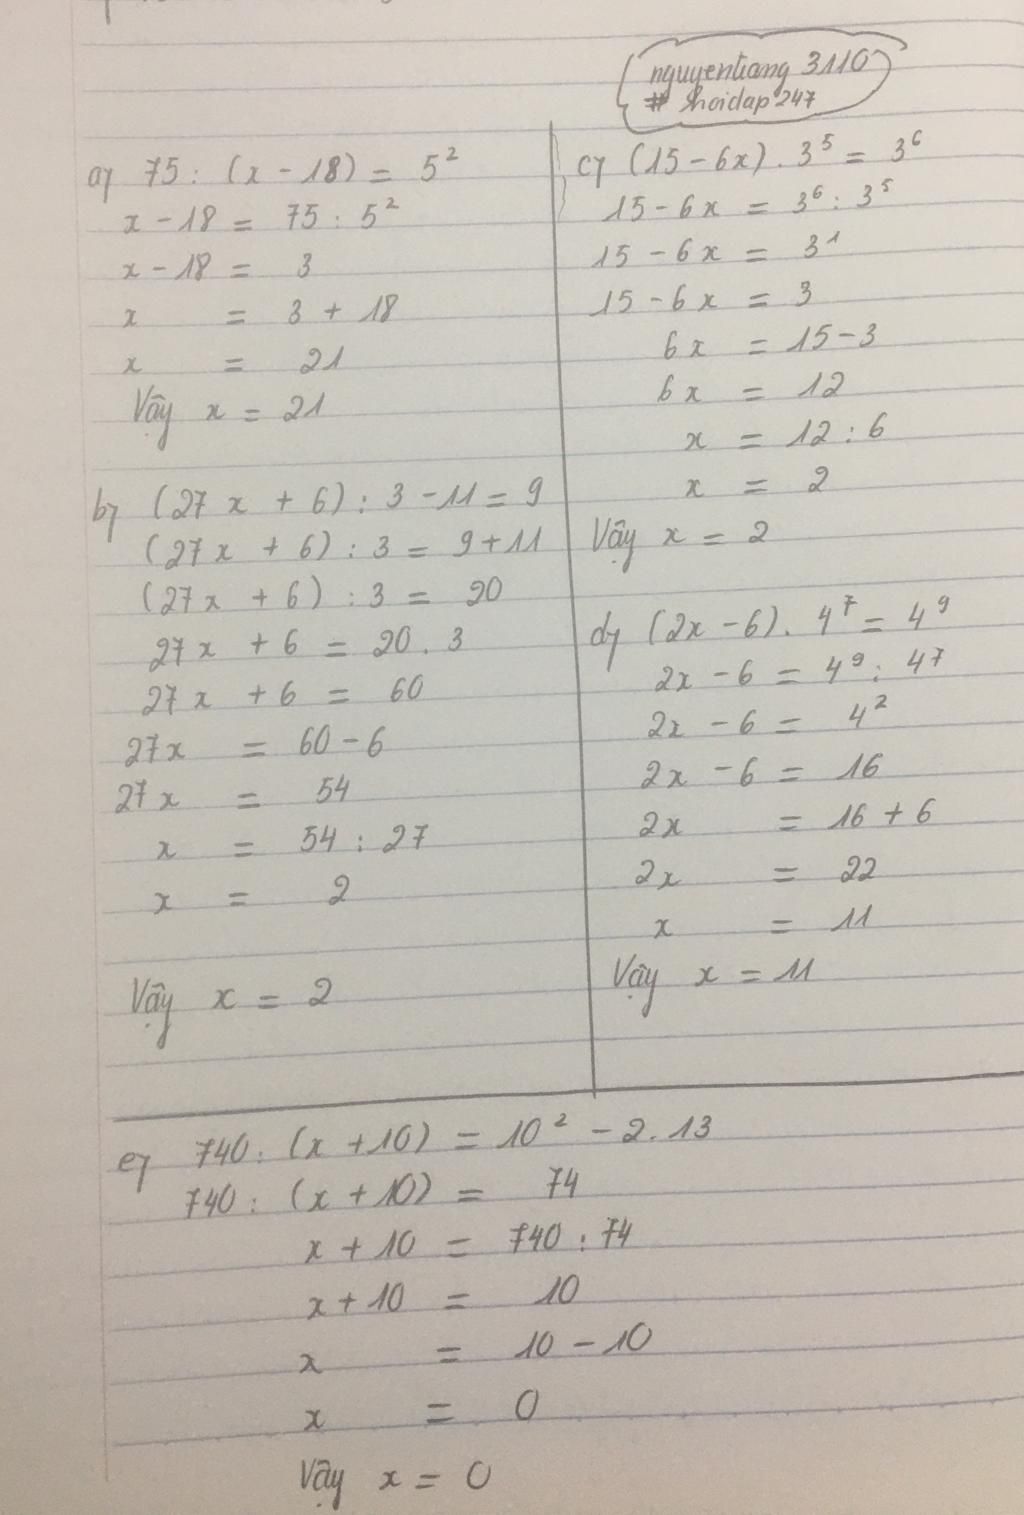 nguyentiang 3110
# hoidap247
a) 75 : (x - 18) = 5²
x - 18 = 75 : 5²
x - 18 = 3
x = 3 + 18
x = 21
Vậy x = 21
b) (27x + 6) : 3 - 11 = 9
(27x + 6) : 3 = 9 + 11
(27x + 6) : 3 = 20
27x + 6 = 20 . 3
27x + 6 = 60
27x = 60 - 6
27x = 54
x = 54 : 27
x = 2
Vậy x = 2
c) (15 - 6x) . 3⁵ = 3⁶
15 - 6x = 3⁶ : 3⁵
15 - 6x = 3¹
15 - 6x = 3
6x = 15 - 3
6x = 12
x = 12 : 6
x = 2
Vậy x = 2
d) (2x - 6) . 4⁷ = 4⁹
2x - 6 = 4⁹ : 4⁷
2x - 6 = 4²
2x - 6 = 16
2x = 16 + 6
2x = 22
x = 11
Vậy x = 11
e) 740 : (x + 10) = 10² - 2 . 13
740 : (x + 10) = 74
x + 10 = 740 : 74
x + 10 = 10
x = 10 - 10
x = 0
Vậy x = 0